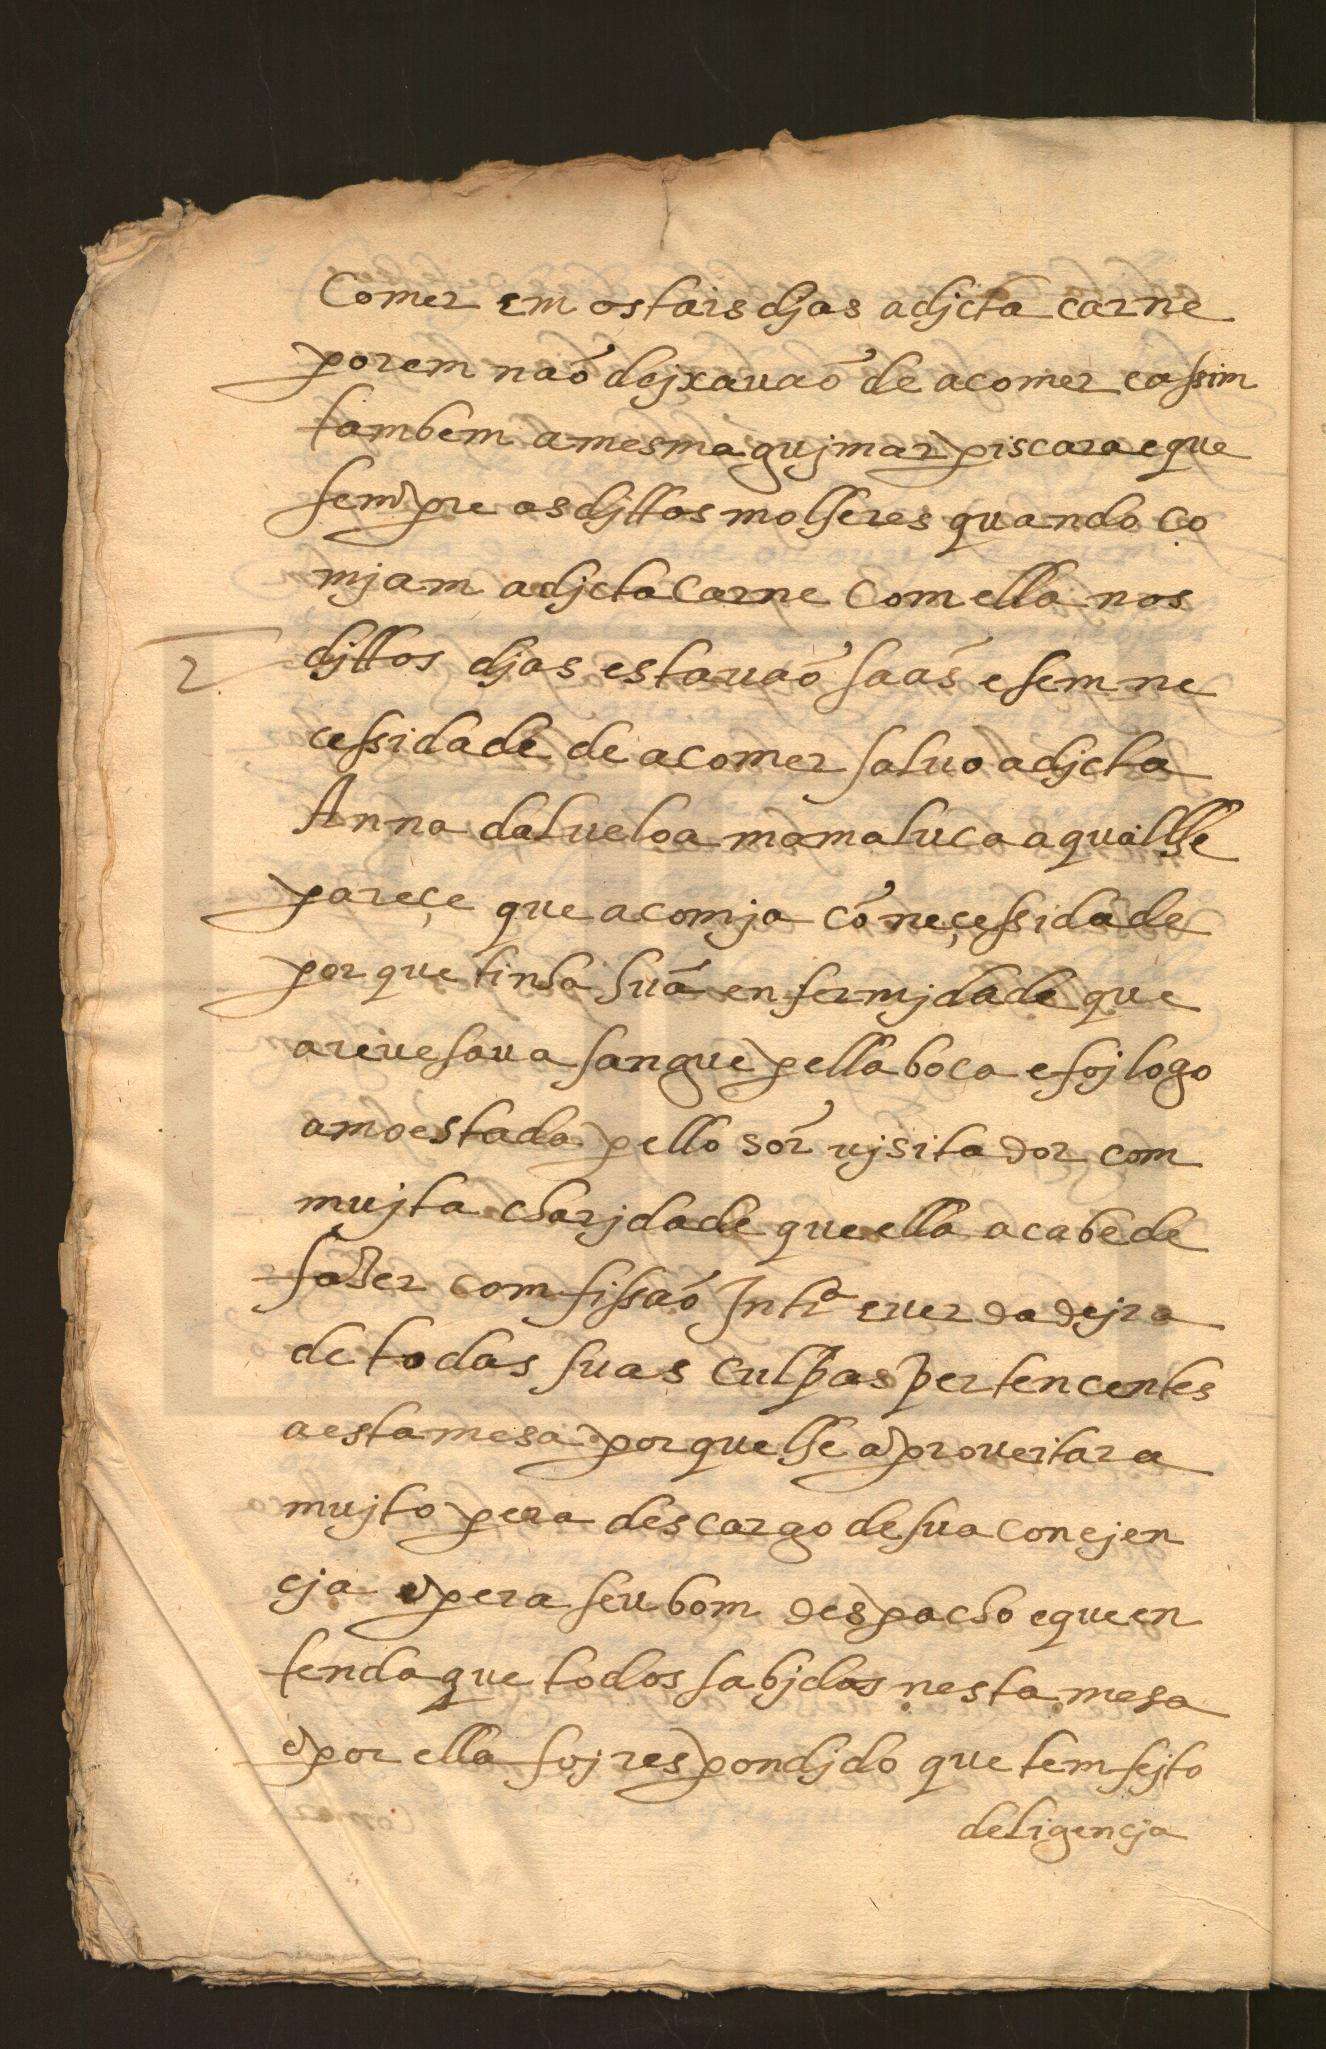 Comer em os tais djas a djcta carne
porem naõ dejxauaõ de a comer e assim
tambem a mesma gujmar piscara e que
sempre as djttas molheres quando co
mjam a djcta carne Com ella nos
djttos djas estauaõ saãs e sem ne
2
cessidade de a comer saluo a djcta
Anna dalueloa mamaluca a qual lhe
pareçe que a comja cõ neçessidade
por que tinha huã enfermjdade que
areuesaua sangue pella boca e foj logo
amoestada pello sõr vjsitador com
mujta charjdade que ella acabe de
fazer comfissaõ Intrª e verdadejra
de todas suas culpas pertencentes
a esta mesa por que lhe aproueitara
mujto pera descargo de sua concjen
cja e pera seu bom despacho e que en
tenda que todos sabjdos nesta mesa
e por ella foj respondjdo que tem fejto
deligencja